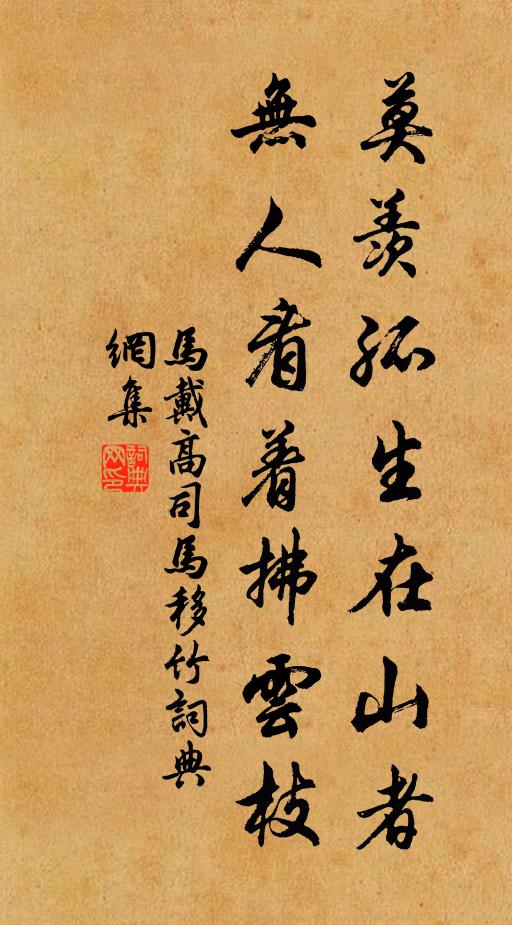 莫羨孤生在山者
無人看着拂雲枝
馬戴高司馬移竹詞典
網集
詞典網印